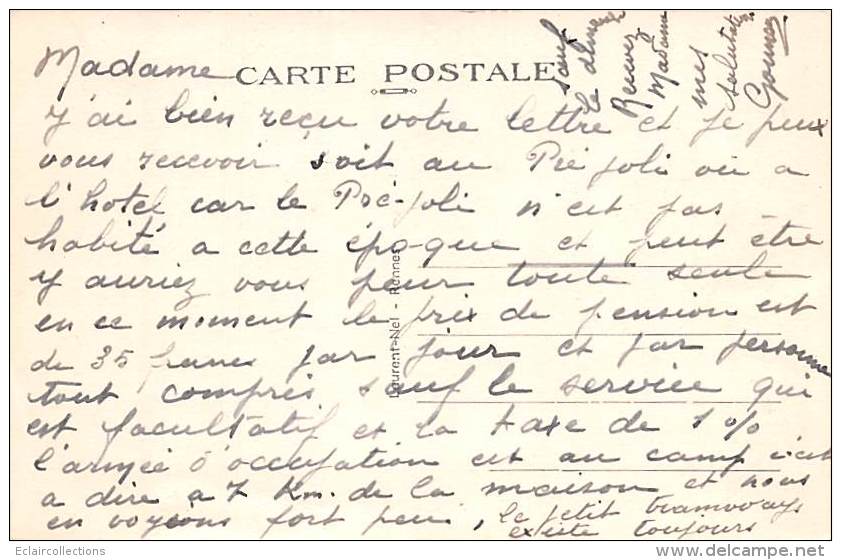 Madame
CARTE POSTALE
J'ai bien reçu votre lettre et je peux
vous recevoir soit au Pré joli ou a
l'hotel car le Pré-joli n'est pas
habité a cette époque et peut être
y auriez vous peur toute seule
en ce moment le prix de pension est
de 35 francs par jour et par personne
tout compris sauf le service qui
est facultatif et la taxe de 1 %
l'armée d'occupation est au camp c'est
a dire a 7 Km. de la maison et nous
en voyions fort peu, le petit tramways
existe toujours
sauf
le dimanche
Recevez
Madame
mes
salutations
Laurent-Nel - Rennes
Eclaircollections
delcampe.net